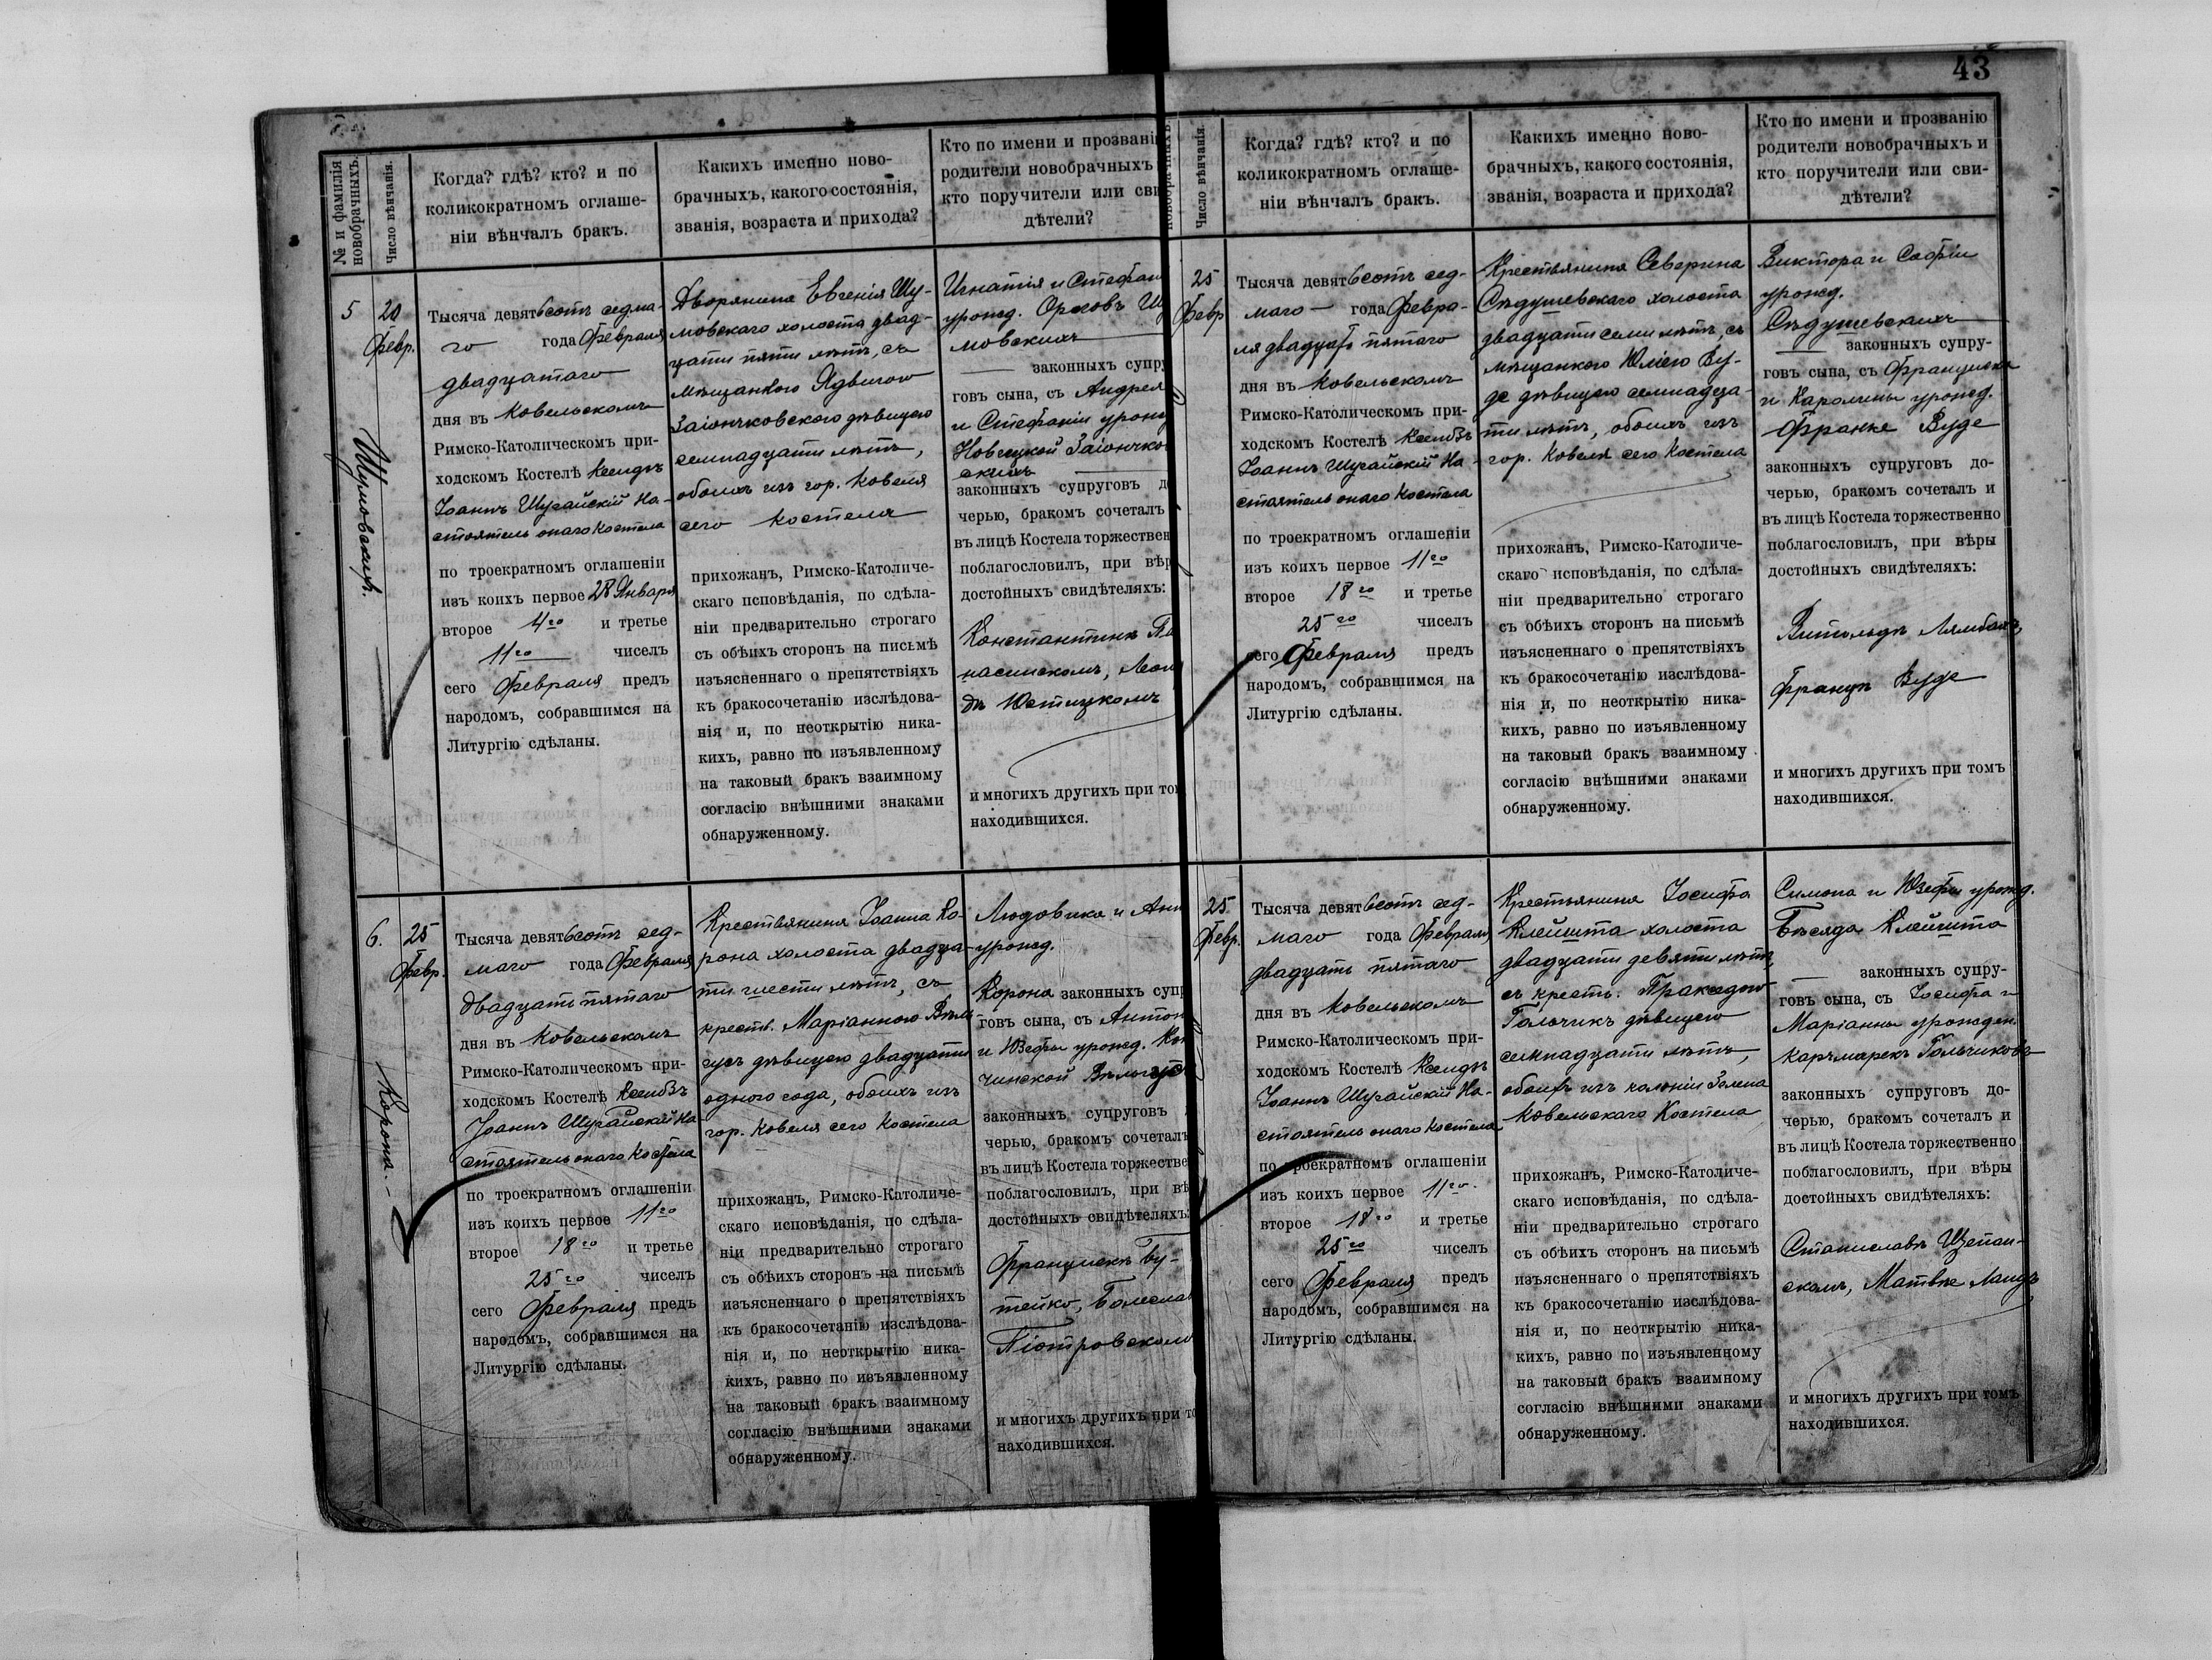 № и фамилія новобрачныхъ.
Число вѣнчанія.
Когда? гдѣ? кто? и по
коликократномъ оглаше-
ніи вѣнчалъ бракъ.
Какихъ именно ново-
брачныхъ, какого состоянія,
званія, возраста и прихода?
Кто по имени и прозвані
родители новобрачныхъ
кто поручители или сви
дѣтели?
5
Шумовскихъ.
20
Февр.
Тысяча девятьсотъ седма-
го года Февраля
двадцатаго
дня въ Ковельскомъ
Римско-Католическомъ при-
ходскомъ Костелѣ Ксендзъ
Іоаннъ Шугайскій На-
стоятель онаго Костела
по троекратномъ оглашеніи
изъ коихъ первое 28 Января
второе 4го и третье
11го чиселъ
сего Февраля предъ
народомъ, собравшимся на
Литургію сдѣланы.
Дворянина Евгенія Шу-
мовскаго холоста двад-
цати пяти лѣтъ, съ
мѣщанкою Ядвигою
Заіончковскою дѣвицею
семнадцати лѣтъ,
обоихъ изъ гор. Ковеля
сего Костела
прихожанъ, Римско-Католиче-
скаго исповѣданія, по сдѣла-
ніи предварительно строгаго
съ обѣихъ сторонъ на письмѣ
изъясненнаго о препятствіяхъ
къ бракосочетанію изслѣдова-
нія и, по неоткрытію ника-
кихъ, равно по изъявленному
на таковый бракъ взаимному
согласію внѣшними знаками
обнаруженному.
Игнатія и Стефан
урожд. Ш
мовскихъ
законныхъ супру
говъ сына, съ Андрея
и Стефаніи урожд
Новицкой Заіончко
скихъ
законныхъ супруговъ д
черью, бракомъ сочеталъ
въ лицѣ Костела торжествен
поблагословилъ, при вѣр
достойныхъ свидѣтеляхъ:
Константинъ
Юстицкомъ
и многихъ другихъ при том
находившихся.
6.
Корона.
25
Февр.
Тысяча девятьсотъ сед-
маго года Февраля
двадцать пятаго
дня въ Ковельскомъ
Римско-Католическомъ при-
ходскомъ Костелѣ Ксендзъ
Іоаннъ Шугайскій На
стоятель онаго Костела
по троекратномъ оглашеніи
изъ коихъ первое 11го
второе 18го и третье
25го чиселъ
сего Февраля предъ
народомъ, собравшимся на
Литургію сдѣланы.
Крестьянина Іоанна Ко-
рона холоста двадца-
ти шести лѣтъ, съ
крест. Маріанною Вѣль
гусъ дѣвицею двадцати
одного года, обоихъ изъ
гор. Ковеля сего Костела
прихожанъ, Римско-Католиче-
скаго исповѣданія, по сдѣла-
ніи предварительно строгаго
съ обѣихъ сторонъ на письмѣ
изъясненнаго о препятствіяхъ
къ бракосочетанію изслѣдова-
нія и, по неоткрытію ника-
кихъ, равно по изъявленному
на таковый бракъ взаимному
согласію внѣшними знаками
обнаруженному.
Людовика и Анн
урожд.
Корона законныхъ супр
говъ сына, съ Антон
и Юзефы урожд.
чинской
законныхъ супруговъ
черью, бракомъ сочеталъ
въ лицѣ Костела торжестве
поблагословилъ, при вѣ
достойныхъ свидѣтеляхъ
Францискъ Бу-
тейко, Болеслав
Піотровскомъ
и многихъ другихъ при то
находившихся.
43
новобрачныхъ.
Число вѣнчанія.
Когда? гдѣ? кто? и по
коликократномъ оглаше-
ніи вѣнчалъ бракъ.
Какихъ именно ново-
брачныхъ, какого состоянія,
званія, возраста и прихода?
Кто по имени и прозванію
родители новобрачныхъ и
кто поручители или сви-
дѣтели?
25
Февр
Тысяча девятьсотъ сед-
маго года Февра-
ля двадцать пятаго
дня въ Ковельскомъ
Римско-Католическомъ при-
ходскомъ Костелѣ Ксендзъ
Іоаннъ Шугайскій На-
стоятель онаго Костела
по троекратномъ оглашеніи
изъ коихъ первое 11го
второе 18го и третье
25го чиселъ
сего Февраля предъ
народомъ, собравшимся на
Литургію сдѣланы.
Крестьянина Северина
Сѣдушевскаго холоста
двадцати семи лѣтъ, съ
мѣщанкою Юліею Ву-
де дѣвицею семнадца-
ти лѣтъ, обоихъ изъ
гор. Ковеля сего Костела
прихожанъ, Римско-Католиче-
скаго исповѣданія, по сдѣла-
ніи предварительно строгаго
съ обѣихъ сторонъ на письмѣ
изъясненнаго о препятствіяхъ
къ бракосочетанію изслѣдова-
нія и, по неоткрытію ника-
кихъ, равно по изъявленному
на таковый бракъ взаимному
согласію внѣшними знаками
обнаруженному.
Виктора и Софіи
урожд.
Сѣдушевскихъ
законныхъ супру-
говъ сына, съ Франциска
и Каролины урожд.
Франке Вуде
законныхъ супруговъ до-
черью, бракомъ сочеталъ и
въ лицѣ Костела торжественно
поблагословилъ, при вѣры
достойныхъ свидѣтеляхъ:
Витольдъ
Францъ Вуде
и многихъ другихъ при томъ
находившихся.
25
Февр.
Тысяча девятьсотъ сед-
маго года Февраля
двадцать пятаго
дня въ Ковельскомъ
Римско-Католическомъ при-
ходскомъ Костелѣ Ксендзъ
Іоаннъ Шугайскій На-
стоятель онаго Костела
по троекратномъ оглашеніи
изъ коихъ первое 11го
второе 18го и третье
25го чиселъ
сего Февраля предъ
народомъ, собравшимся на
Литургію сдѣланы.
Крестьянина Іосифа
Клейшта холоста
двадцати девяти лѣтъ,
съ крест. Пракседою
Гольчикъ дѣвицею
семнадцати лѣтъ,
обоихъ изъ колоніи
Ковельскаго Костела
прихожанъ, Римско-Католиче-
скаго исповѣданія, по сдѣла-
ніи предварительно строгаго
съ обѣихъ сторонъ на письмѣ
изъясненнаго о препятствіяхъ
къ бракосочетанію изслѣдова-
нія и, по неоткрытію ника-
кихъ, равно по изъявленному
на таковый бракъ взаимному
согласію внѣшними знаками
обнаруженному.
Симона и Юзефы урожд.
Бѣсяда Клейшта
законныхъ супру-
говъ сына, съ Іосифа и
Маріанны урожден.
Качмарекъ Гольчиковъ
законныхъ супруговъ до-
черью, бракомъ сочеталъ и
въ лицѣ Костела торжественно
поблагословилъ, при вѣры
достойныхъ свидѣтеляхъ:
Станиславъ Щепан-
скомъ, Матвѣе
и многихъ другихъ при томъ
находившихся.